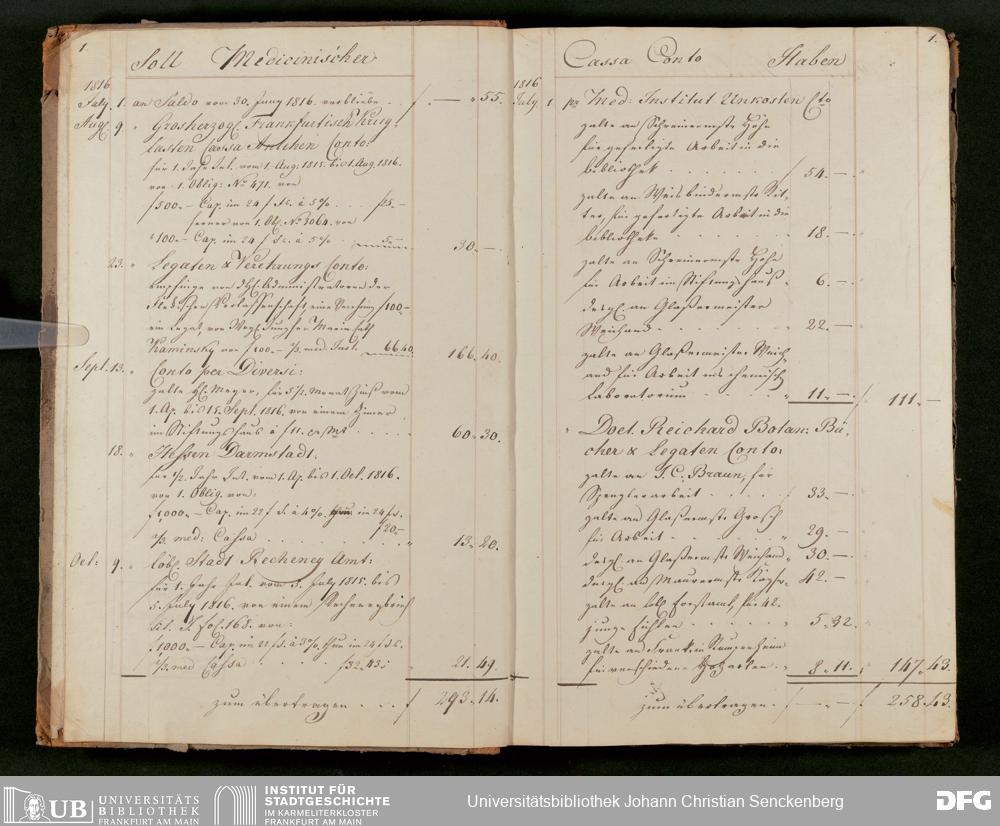 1.
Soll Medicinischer
1816
July. 1. an Saldo vom 30. Juny 1816. verbliebe . . f — " 55.
Aug. 9. " Grosherzogl. Frankfurtisch Krieg
lasten Cassa Anlehen Conto:
für 1. Jahr Int. vom 1. Aug: 1815. bis 1. Aug. 1816.
von 1. Oblig: No 471. von
f500.— Cap. im 24 f Fs. à 5% . . . f25.—
ferner von 1. Obl. No 3064. von
" 100.— Cap. im 24 f Fs. à 5% . . 5.— 30.—
23. " Legaten & Verehrungs Conto:
Verlassenschaft, eine f100.—
ein Legat, von Jungfer Maria
Kaminsky von f100.— ½ med. Inst. 66.40. 166.40.
Sept. 13. " Conto per Diversi:
zalte H. Meyer, für 5½ Monat Zins vom
1. Ap. bis 15. Sept. 1816. von einem Zimer
im Stiftungshaus à f11. . . . 60.30.
18. " Hessen Darmstadt.
für ½ Jahr Int. vom 1. Ap. bis 1. Oct. 1816.
von 1. Oblig. von:
f1,000.— Cap. im 22 f à 4% im 24 f
f20.—
med: Cassa . . . . . " 13.20.
Oct: 9. " löbl. Stadt Recheney Amt:
für 1. Jahr Int. vom 5. July 1815. bis
5. July 1816. von einem Recheneybrief
Lit. fol. 168. von:
f1000.— Cap. im 22 f à 3% im 24 f
med Cassa . . . f32.43. " 21.49.
zum übertragen . . . f 293.14.
1.
Cassa Conto Haben
1816
July 1 pr Med: Institut Unkosten Cto
zalte an Schreinermstr Höhn
für gefertigte Arbeit in die
bibliothek . . . . . f 54.—
zalte an Weisbindermstr Rit-
ter, für gefertigte Arbeit in die
bibliotheke . . . . . " 18.—
zalte an Schreinermstr Höhn
für Arbeit im Stiftungshaus " 6.—
desgl. an Glasermeister
Weichand . . . . . " 22.—
zalte an Glasermeister Weich-
and für Arbeit ins chemische
Laboratorium . . . . " 11.— f 111.—
" Doct. Reichard Botan: Bü-
cher & Legaten Conto:
zalte an J. C. Braun, für
Spenglerarbeit . . . . f 33.—
zalte an Glasermstr Gross
für Arbeit . . . . . " 29.—
desgl. an Glasermstr Weichand " 30.—
desgl. an Maurermstr " 42.—
zalte an löbl. Forstamt, für 42.
junge . . . . . " 5.32.
zalte an Frank in Rumpenheim
für verschiedene . . " 8.11. f 147.43.
zum übertragen . f — " — f 258.43.
UB UNIVERSITÄTS
BIBLIOTHEK
FRANKFURT AM MAIN
INSTITUT FÜR
STADTGESCHICHTE
IM KARMELITERKLOSTER
FRANKFURT AM MAIN
Universitätsbibliothek Johann Christian Senckenberg
DFG